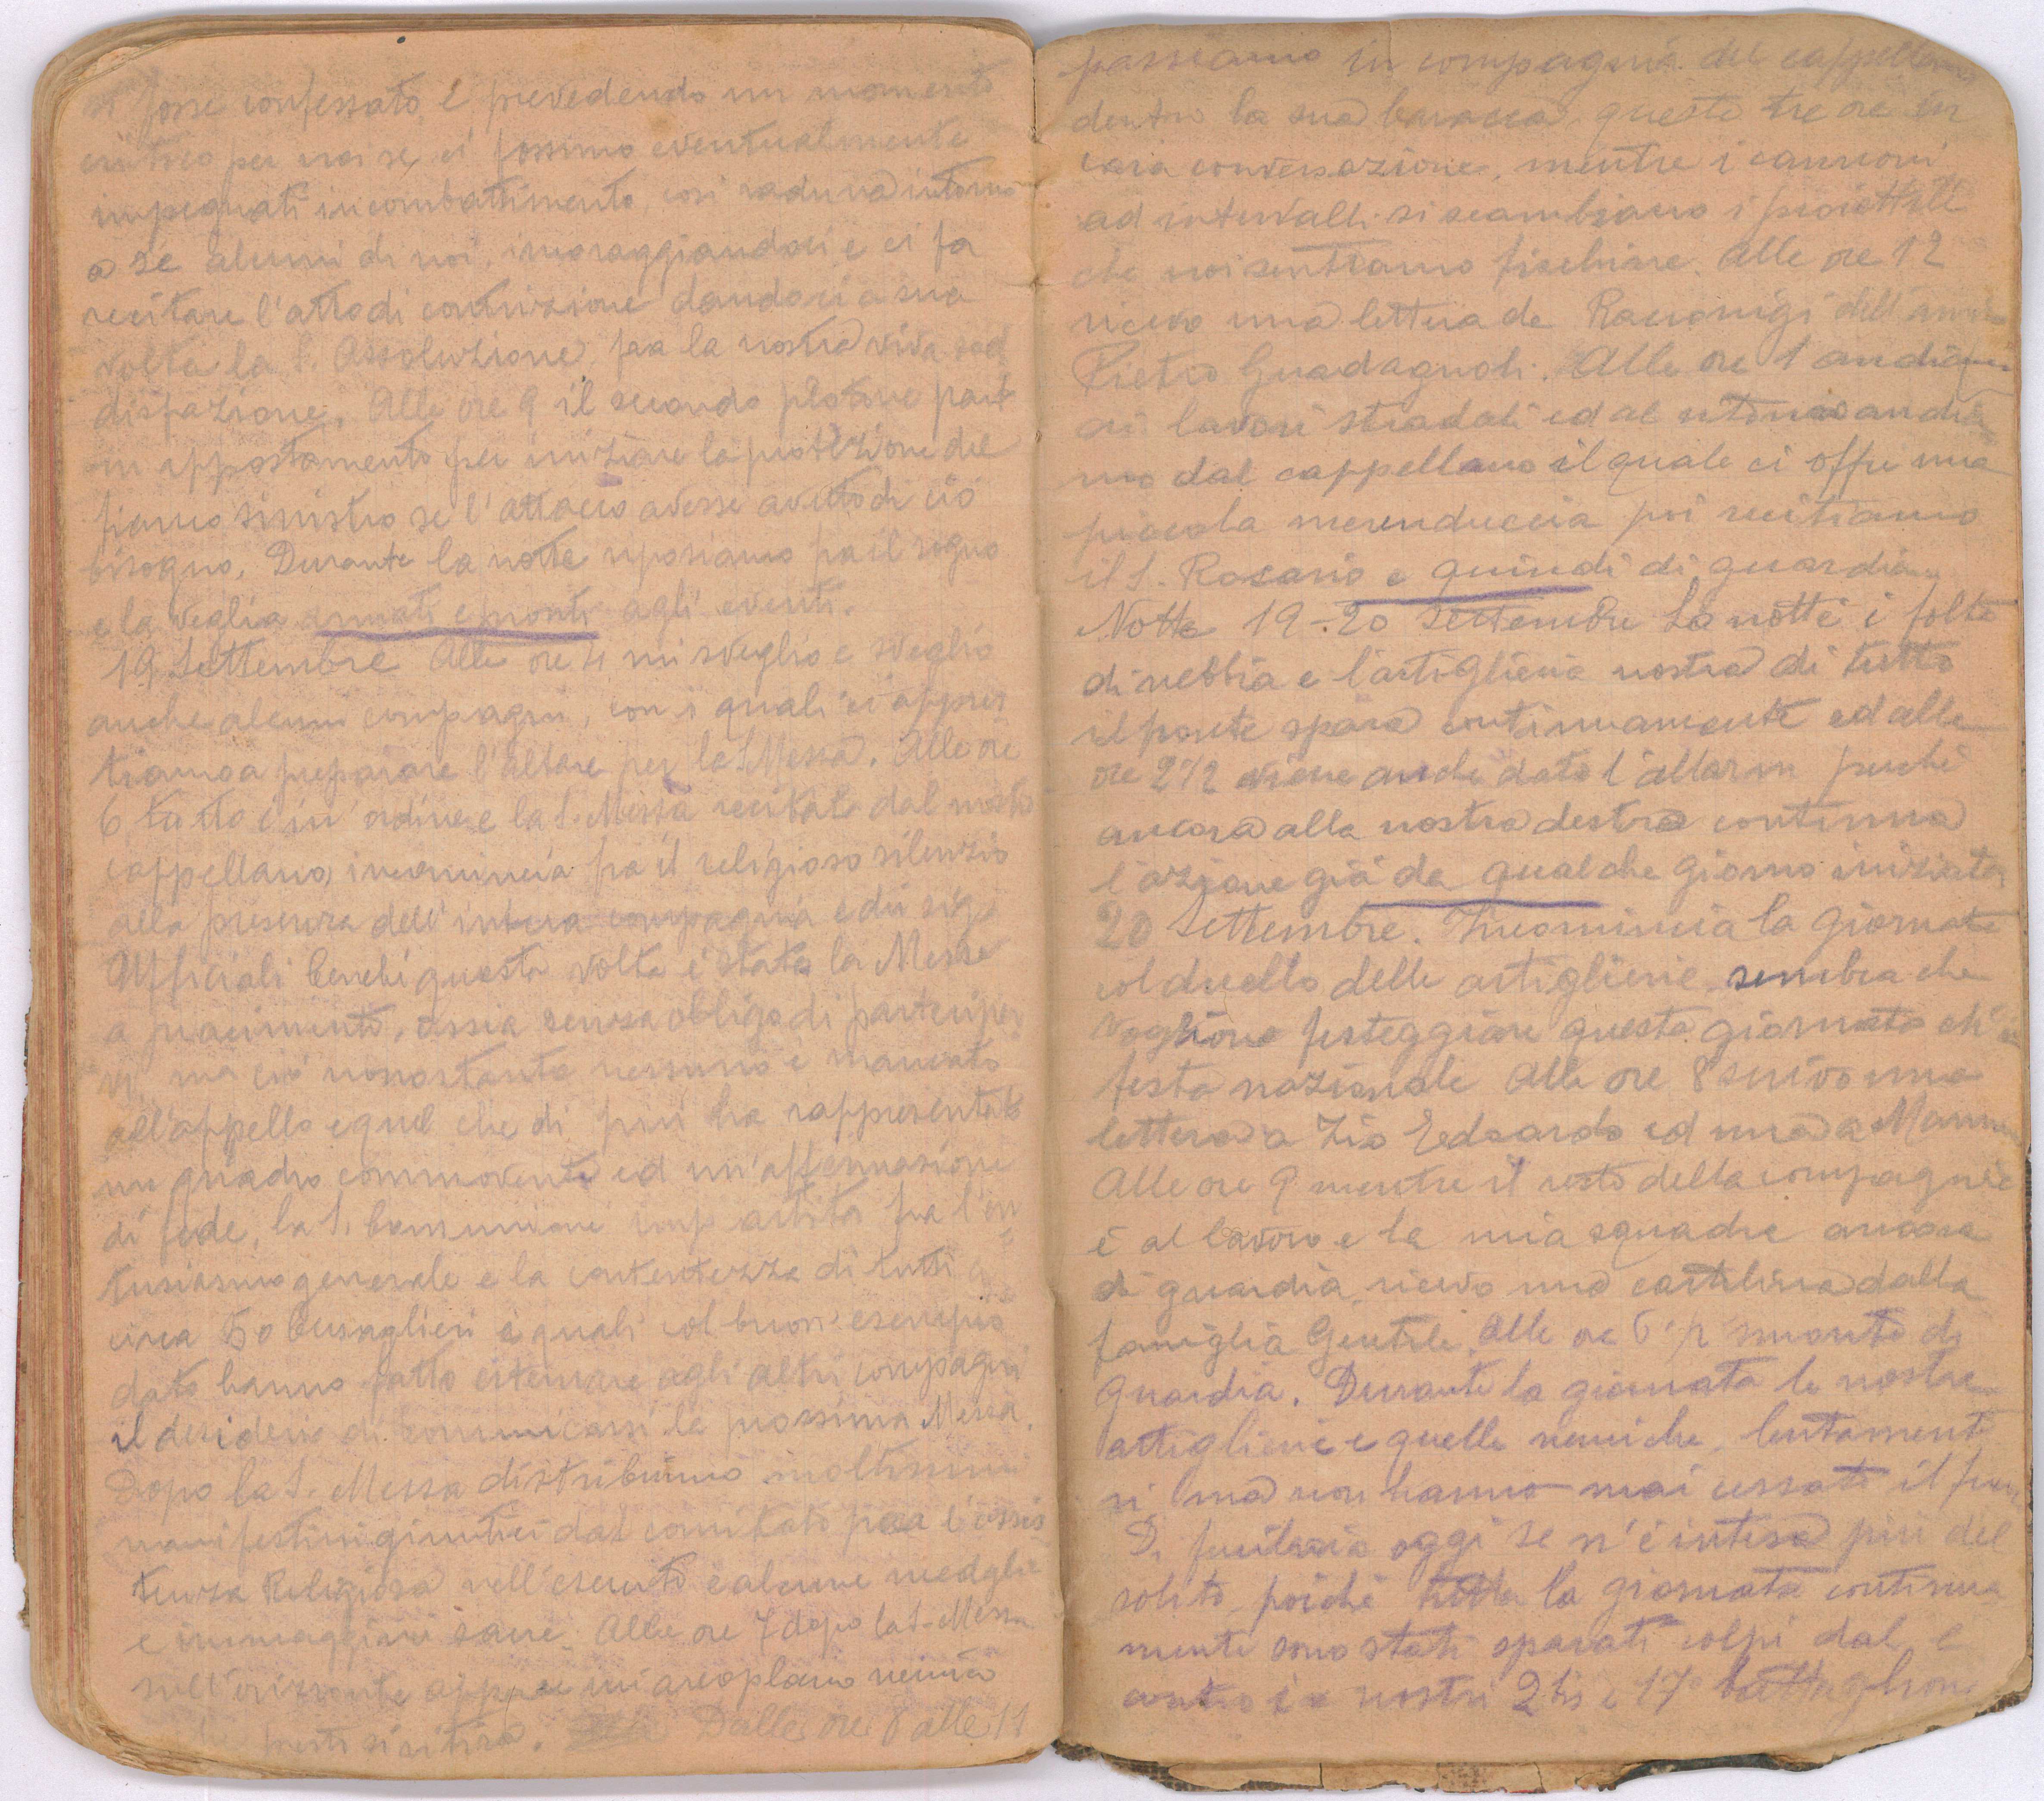 si fosse confessato, e prevedendo un momento
critico per noi se ci fossimo eventualmente
impegnati in combattimento, così raduna intorno
a sé alcuni di noi, incoraggiandoci e ci fa
recitare l'atto di contrizione dandoci a sua
volta la S. Assoluzione fra la nostra viva sod
disfazione. Alle ore 9 il secondo plotone part
in appostamento per iniziare la protezione del
fianco sinistro se l'attacco avesse avuto di ciò
bisogno. Durante la notte riposiamo fra il sogno
e la veglia armati e pronti agli eventi.
19 Settembre Alle ore 4 mi sveglio e sveglio
anche alcuni compagni, con i quali ci appres
tiamo a preparare l'altare per la S. Messa. Alle ore
6 tutto è in ordine e la S. Messa recitata dal nostro
cappellano, incomincia fra il religioso silenzio
alla presenza dell'intera compagnia e dei sig.
Ufficiali benché questa volta è stata la Messa
a piacimento, ossia senza obligo di parteciper
vi, ma ciò nonostante nessuno è mancato
all'appello e quel che di più ha rappresentato
un quadro commovente ed un'affermazione
di fede, la S. Comunione impartita fra l'en
tusiasmo generale e la contentezza di tutti a
circa 50 bersaglieri i quali col buon esempio
dato hanno fatto esternare agli altri compagni
il desiderio di comunicarsi la prossima Messa.
Dopo la S. Messa distribuimo moltissimi
manifestini giuntici dal comitato per l'assis
tenza Religiosa nell'esercito e alcune medaglie
e immaggini sacre. Alle ore 7 dopo la S. Messa
sull'orizzonte appare un areoplano nemico
che presto si ritira. Dalle ore 8 alle 11
passiamo in compagnia del cappellano
dentro la sua baracca queste tre ore in
cara conversazione, mentre i cannoni
ad intervalli si scambiano i proiettili
che noi sentiamo fischiare. Alle ore 12
ricevo una lettera da Racconigi dell'amico
Pietro Guadagnoli. Alle ore 1 andiamo
ai lavori stradali ed al ritorno andia
mo dal cappellano il quale ci offre una
piccola merenduccia poi recitiamo
il S. Rosario e quindi di guardia
Notte 19-20 Settembre La notte è folta
di nebbia e l'artiglieria nostra di tutto
il fronte spara continuamente ed alle
ore 2 1/2 viene anche dato l'allarm perché
ancora alla nostra destra continua
l'azione già da qualche giorno iniziata
20 Settembre. Incomincia la giornata
col duello delle artiglierie sembra che
vogliono festeggiare questa giornata ch'è
festa nazionale Alle ore 8 scrivo una
lettera a Zio Edoardo ed una a Mamma
Alle ore 9 mentre il resto della compagnia
è al lavoro e la mia squadra ancora
di guardia ricevo una cartolina dalla
famiglia Gentili. Alle ore 6 1/2 smonto di
guardia. Durante la giornata le nostre
artiglierie e quelle nemiche, lentament
si ma non hanno mai cessato il fuoco
Di fucileria oggi se n'è intesa più del
solito, poiché tutta la giornata continua
mente sono stati sparati colpi dal e
contro i nostri 2 bis e 17° battaglione